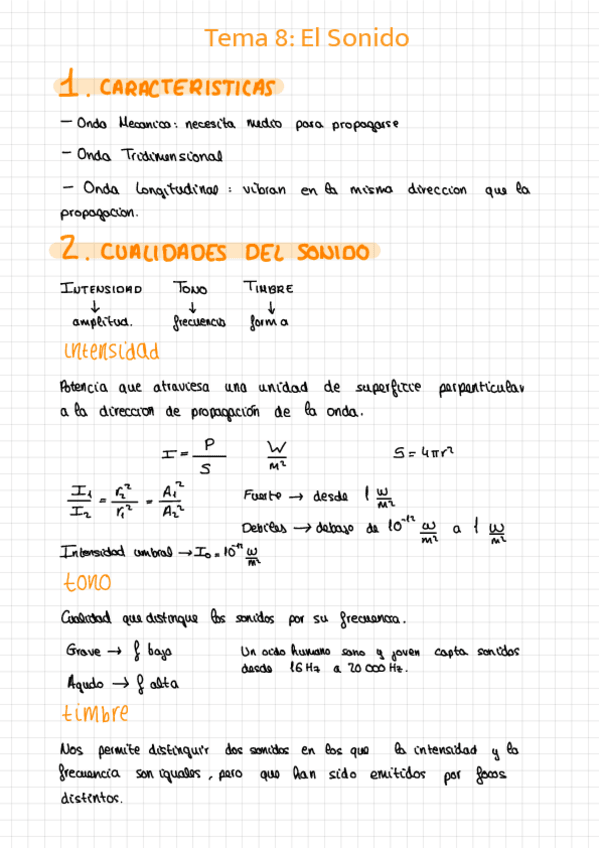 Tema 8: El Sonido
1. CARACTERISTICAS
- Onda Mecanica: necesita medio para propagarse
- Onda Tridimensional
- Onda Longitudinal: vibran en la misma direccion que la
propagacion.
2. CUALIDADES DEL SONIDO
INTENSIDAD TONO TIMBRE
↓ ↓ ↓
amplitud. frecuencia forma
intensidad
Potencia que atraviesa una unidad de superficie perpenticular
a la direccion de propagación de la onda.
I = P/S W/m² S = 4πr²
I₁/I₂ = r₂²/r₁² = A₁²/A₂² Fuerte → desde 1 W/m²
Debiles → debajo de 10⁻¹² W/m² a 1 W/m²
Intensidad umbral → I₀ = 10⁻¹² W/m²
tono
Cualidad que distingue los sonidos por su frecuencia.
Grave → f baja Un oido humano sano y joven capta sonidos
desde 16 Hz a 20 000 Hz.
Agudo → f alta
timbre
Nos permite distinguir dos sonidos en los que la intensidad y la
frecuencia son iguales, pero que han sido emitidos por focos
distintos.